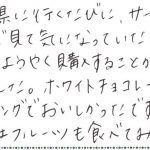 県に行くたびに、サー
で見て気になっていた
ようやく購入することが
した。ホワイトチョコレー
ングでおいしかったです
はフルーツも食べてみ